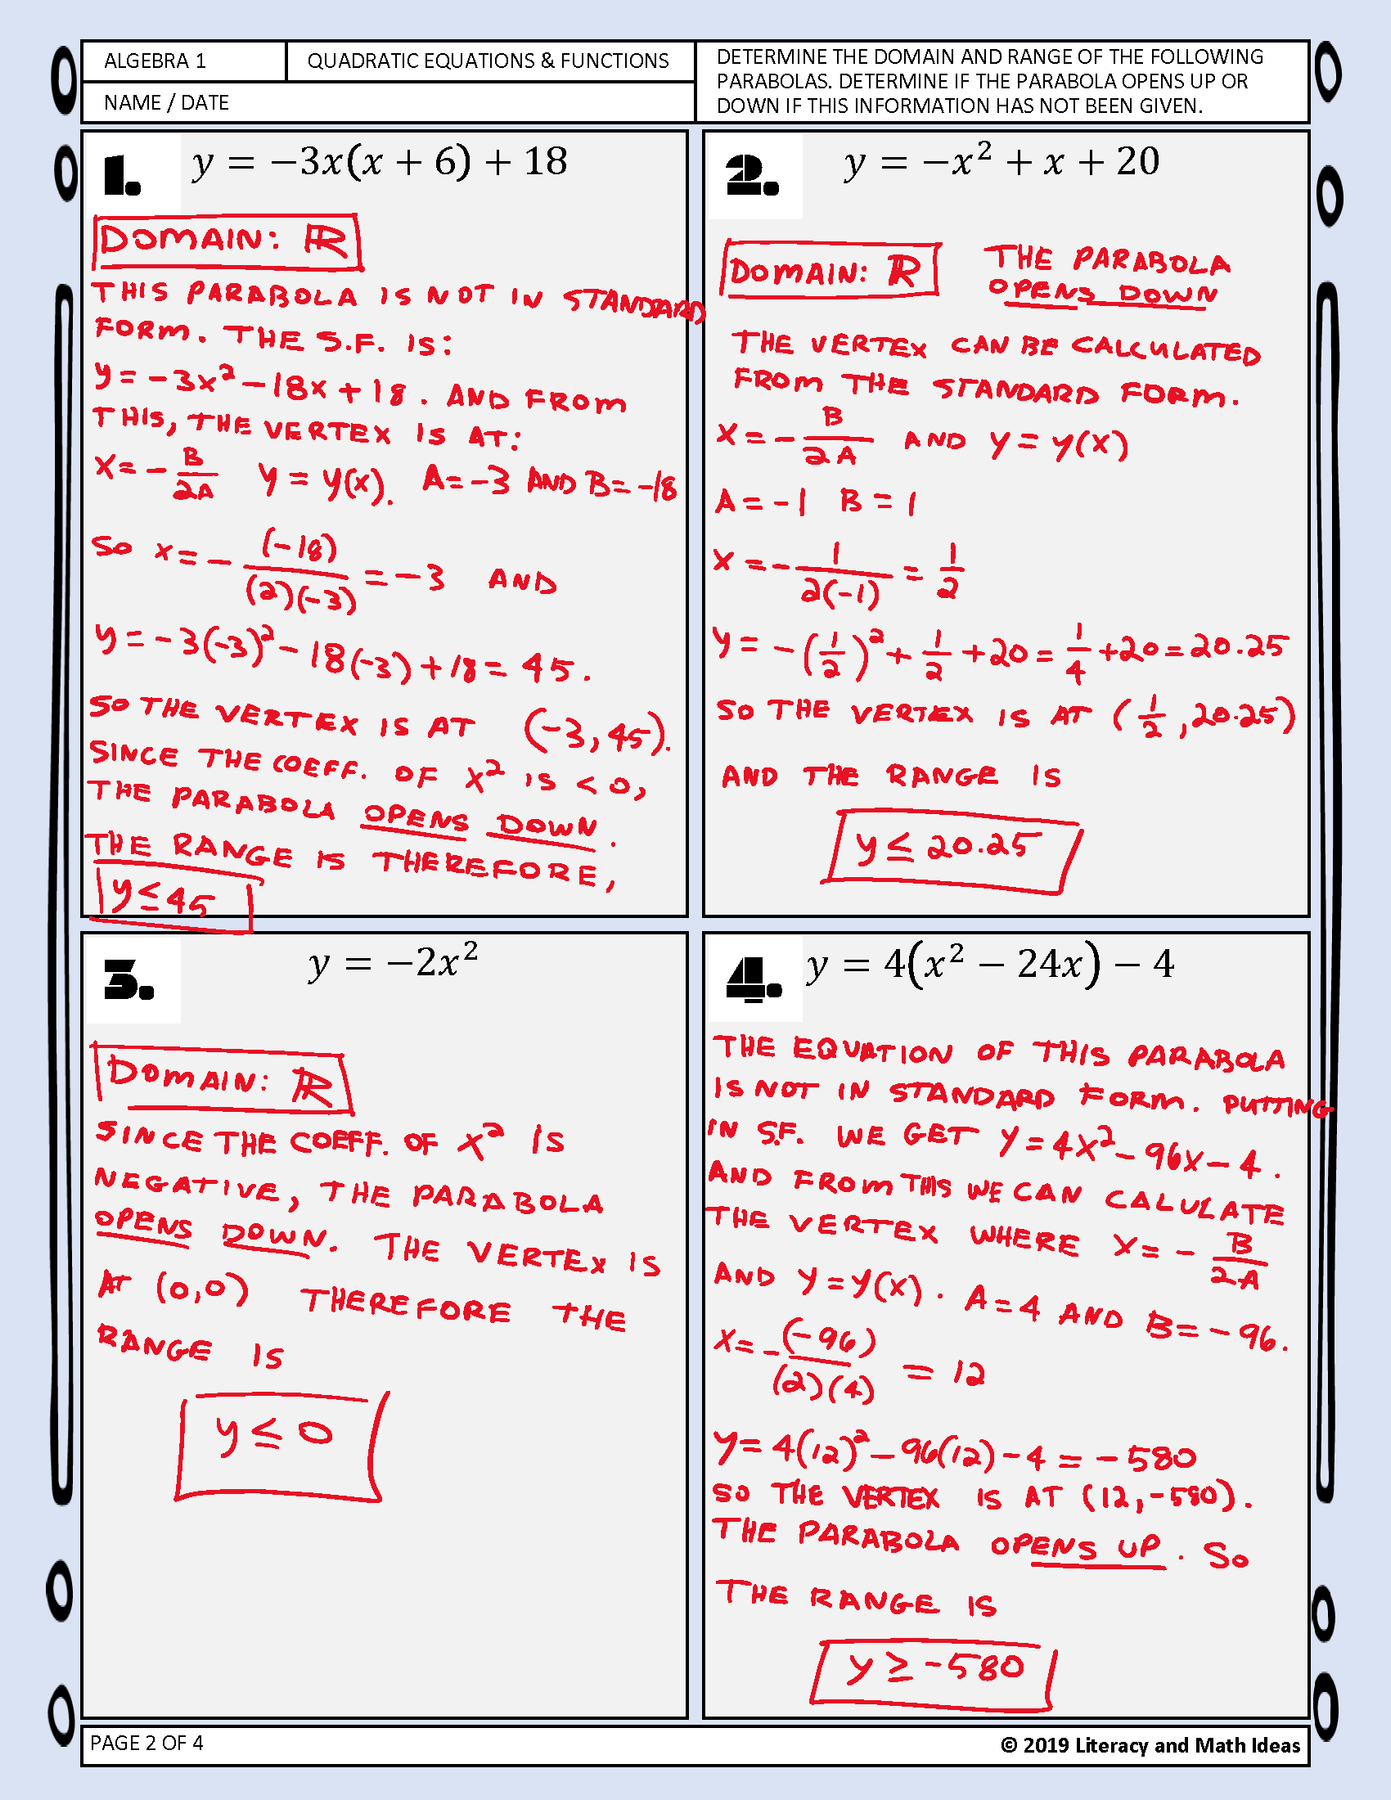 ALGEBRA 1
QUADRATIC EQUATIONS & FUNCTIONS
NAME / DATE
DETERMINE THE DOMAIN AND RANGE OF THE FOLLOWING
PARABOLAS. DETERMINE IF THE PARABOLA OPENS UP OR
DOWN IF THIS INFORMATION HAS NOT BEEN GIVEN.
1. y = −3x(x + 6) + 18
DOMAIN: ℝ
THIS PARABOLA IS NOT IN STANDARD
FORM. THE S.F. IS:
y = -3x² - 18x + 18. AND FROM
THIS, THE VERTEX IS AT:
x = - B/2A y = y(x). A = -3 AND B = -18
SO x = - (-18)/(2)(-3) = -3 AND
y = -3(-3)² - 18(-3) + 18 = 45.
SO THE VERTEX IS AT (-3, 45).
SINCE THE COEFF. OF x² IS < 0,
THE PARABOLA OPENS DOWN.
THE RANGE IS THEREFORE,
y ≤ 45
2. y = −x² + x + 20
DOMAIN: ℝ THE PARABOLA
OPENS DOWN
THE VERTEX CAN BE CALCULATED
FROM THE STANDARD FORM.
x = - B/2A AND y = y(x)
A = -1 B = 1
x = - 1/2(-1) = 1/2
y = -(1/2)² + 1/2 + 20 = 1/4 + 20 = 20.25
SO THE VERTEX IS AT (1/2, 20.25)
AND THE RANGE IS
y ≤ 20.25
3. y = −2x²
DOMAIN: ℝ
SINCE THE COEFF. OF x² IS
NEGATIVE, THE PARABOLA
OPENS DOWN. THE VERTEX IS
AT (0,0) THEREFORE THE
RANGE IS
y ≤ 0
4. y = 4(x² − 24x) − 4
THE EQUATION OF THIS PARABOLA
IS NOT IN STANDARD FORM. PUTTING
IN S.F. WE GET y = 4x² - 96x - 4.
AND FROM THIS WE CAN CALULATE
THE VERTEX WHERE x = - B/2A
AND y = y(x). A = 4 AND B = -96.
x = - (-96)/(2)(4) = 12
y = 4(12)² - 96(12) - 4 = -580
SO THE VERTEX IS AT (12, -580).
THE PARABOLA OPENS UP. SO
THE RANGE IS
y ≥ -580
PAGE 2 OF 4
© 2019 Literacy and Math Ideas